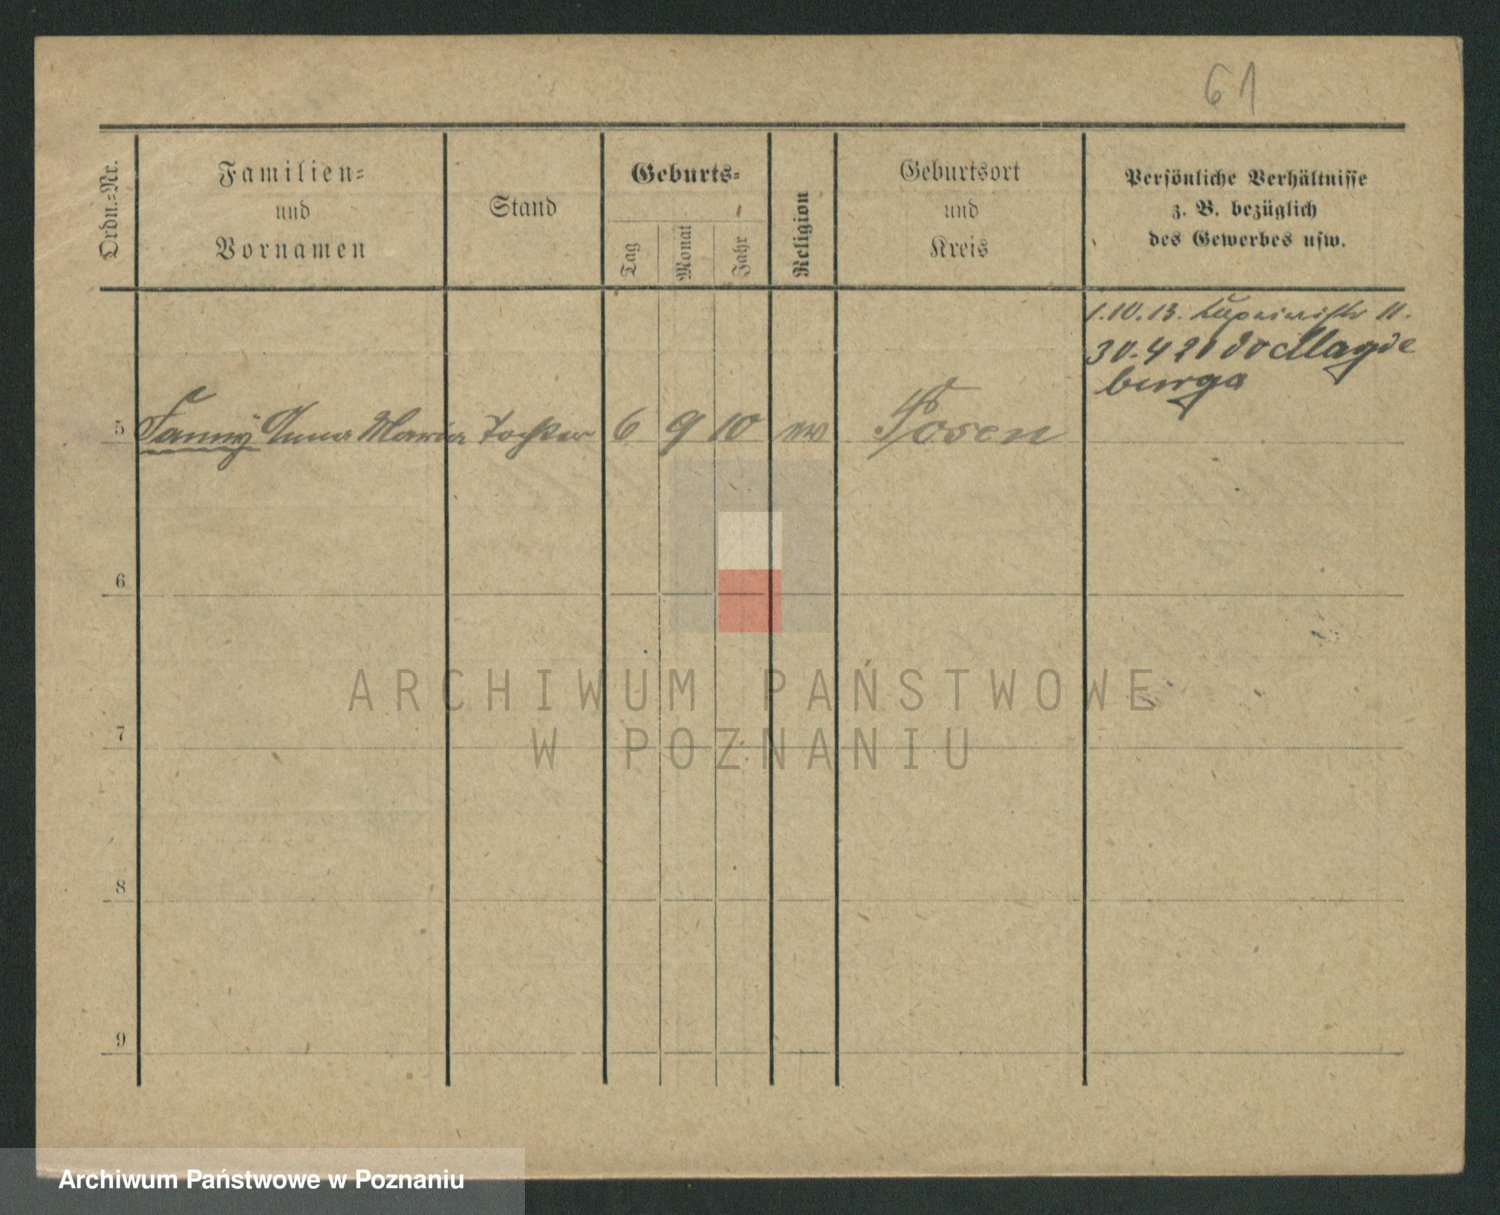 61
Ordn.-Nr.
Familien-
und
Vornamen
Stand
Geburts-
Tag
Monat
Jahr
Religion
Geburtsort
und
Kreis
Persönliche Verhältnisse
z. B. bezüglich
des Gewerbes usw.
1.10.13. 11.
30.4 20 do Magde
burga
5 Fanny Anna Maria Tochter 6 9 10 ev Posen
6
7
8
9
ARCHIWUM PAŃSTWOWE
W POZNANIU
Archiwum Państwowe w Poznaniu